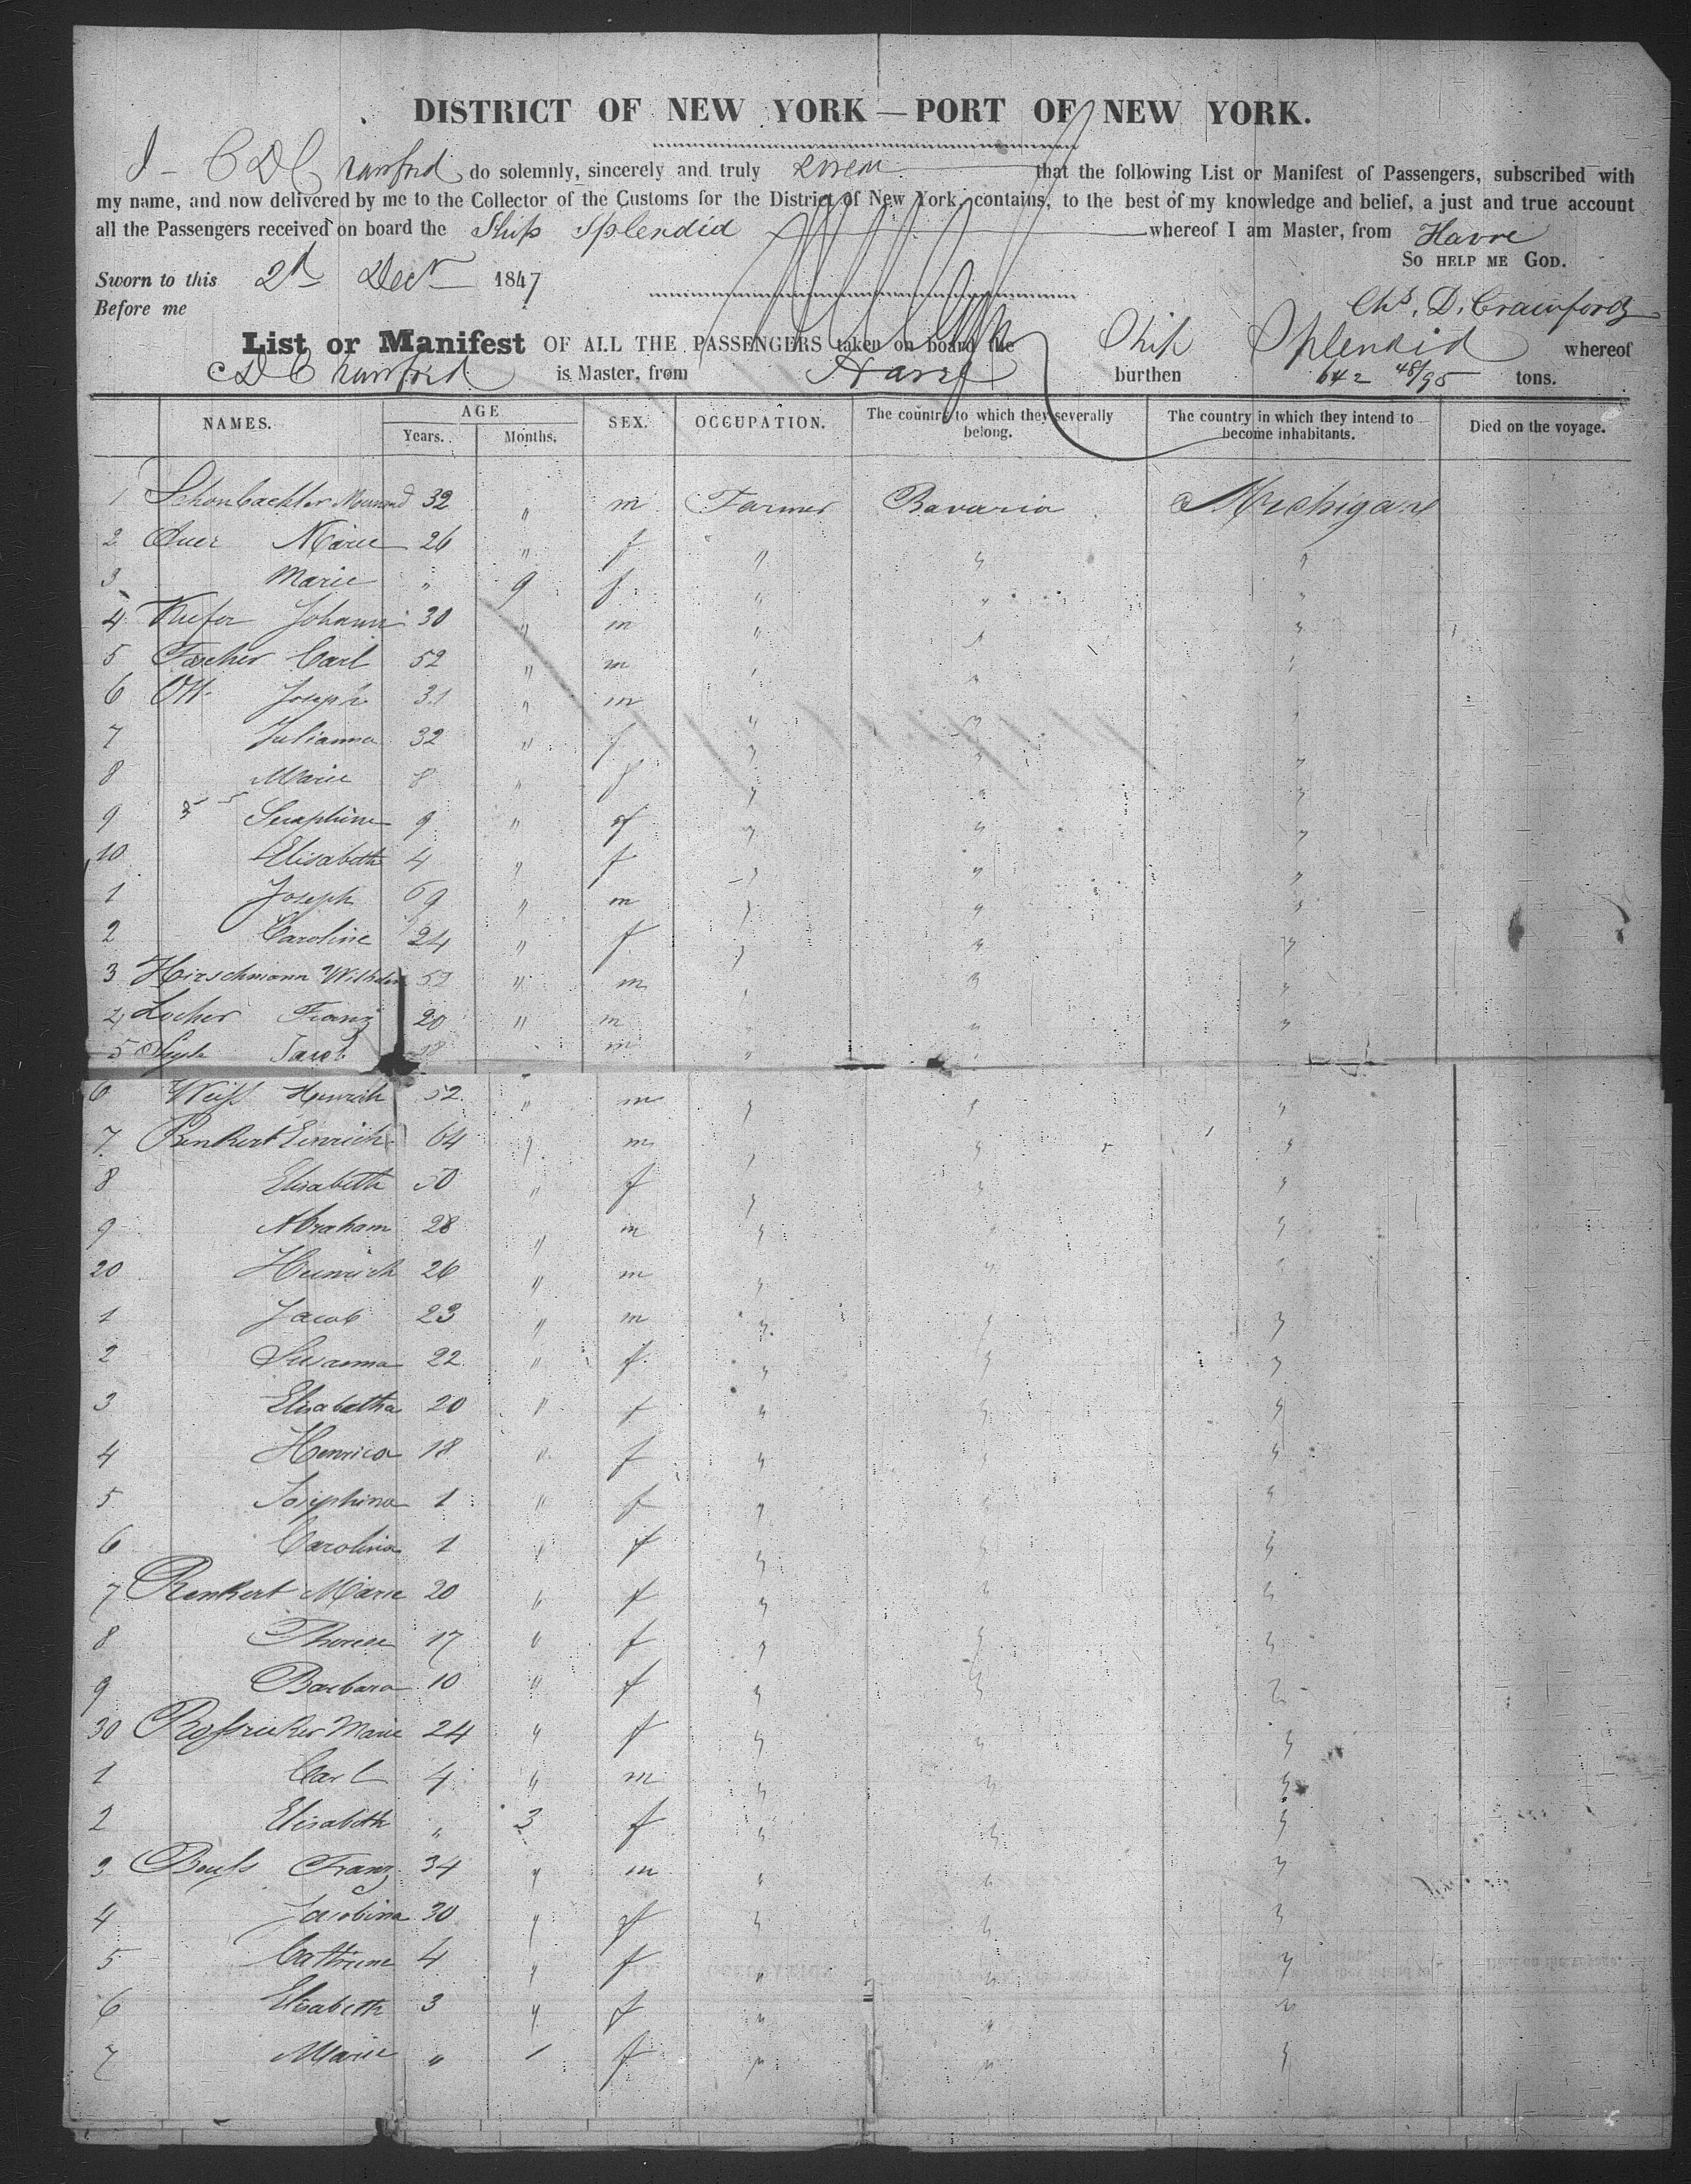 DISTRICT OF NEW YORK — PORT OF NEW YORK.
I - C D Crawford do solemnly, sincerely and truly swear that the following List or Manifest of Passengers, subscribed with
my name, and now delivered by me to the Collector of the Customs for the District of New York, contains, to the best of my knowledge and belief, a just and true account
all the Passengers received on board the Ship Splendid whereof I am Master, from Havre
SO HELP ME GOD.
Sworn to this 2d Decr 1847
Before me
Chs. D. Crawford
List or Manifest OF ALL THE PASSENGERS taken on board the Ship Splendid whereof
C D Crawford is Master, from Havre burthen 642 48/95 tons.
NAMES. AGE Years. Months. SEX. OCCUPATION. The country to which they severally belong. The country in which they intend to become inhabitants. Died on the voyage.
1 Schonbachler 32 " m Farmer Bavaria Michigan
2 Auer Marie 26 " f " " "
3 Marie " 9 f " " "
4 Kiefer Johann 30 " m " " "
5 Carl 52 " m " " "
6 Ott Joseph 31 " m " " "
7 Julianna 32 " f " " "
8 Marie 8 " f " " "
9 Seraphine 9 " f " " "
10 Elisabeth 4 " f " " "
1 Joseph 69 " m " " "
2 Caroline 24 " f " " "
3 Hirschmann Wilhelm 52 " m " " "
4 Locher Franz 20 " m " " "
5 Jacob 18 m " "
6 Weiss Heinrich 52 " m " " "
7 Renkert Heinrich 64 " m " " "
8 Elisabeth 50 " f " " "
9 Abraham 28 " m " " "
20 Heinrich 26 " m " " "
1 Jacob 23 " m " " "
2 Susanna 22 " f " " "
3 Elisabetha 20 " f " " "
4 Henrica 18 " f " " "
5 Josephina 1 " f " " "
6 Carolina 1 " f " " "
7 Renkert Marie 20 " f " " "
8 Therese 17 " f " " "
9 Barbara 10 " f " " "
30 Marie 24 " f " " "
1 Carl 4 " m " " "
2 Elisabeth " 3 f " " "
3 Franz 34 " m " " "
4 Jacobina 30 " f " " "
5 Cathrine 4 " f " " "
6 Elisabeth 3 " f " " "
7 Marie " 1 f " " "